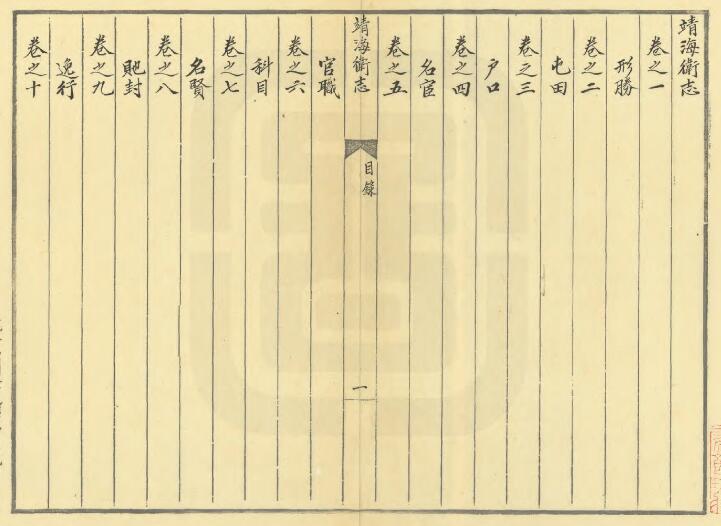 靖海衛志
卷之一
形勝
卷之二
屯田
卷之三
戶口
卷之四
名宦
卷之五
靖海衛志
目錄
一
官職
卷之六
科目
卷之七
名賢
卷之八
貤封
卷之九
逸行
卷之十